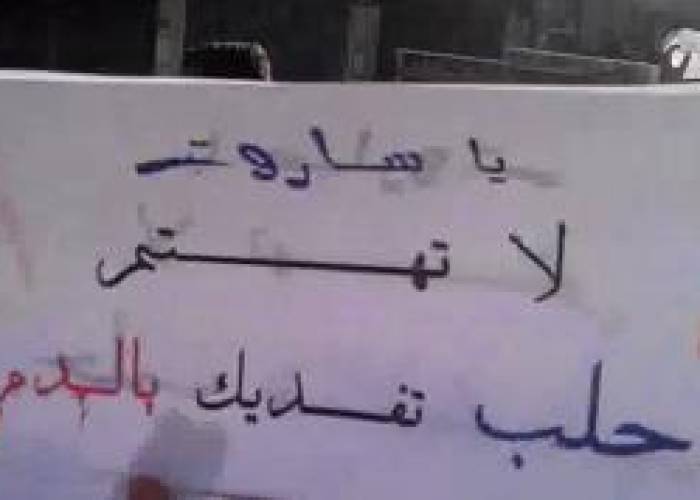 يا ساروت
لا تهتم
حلب تفديك بالدم